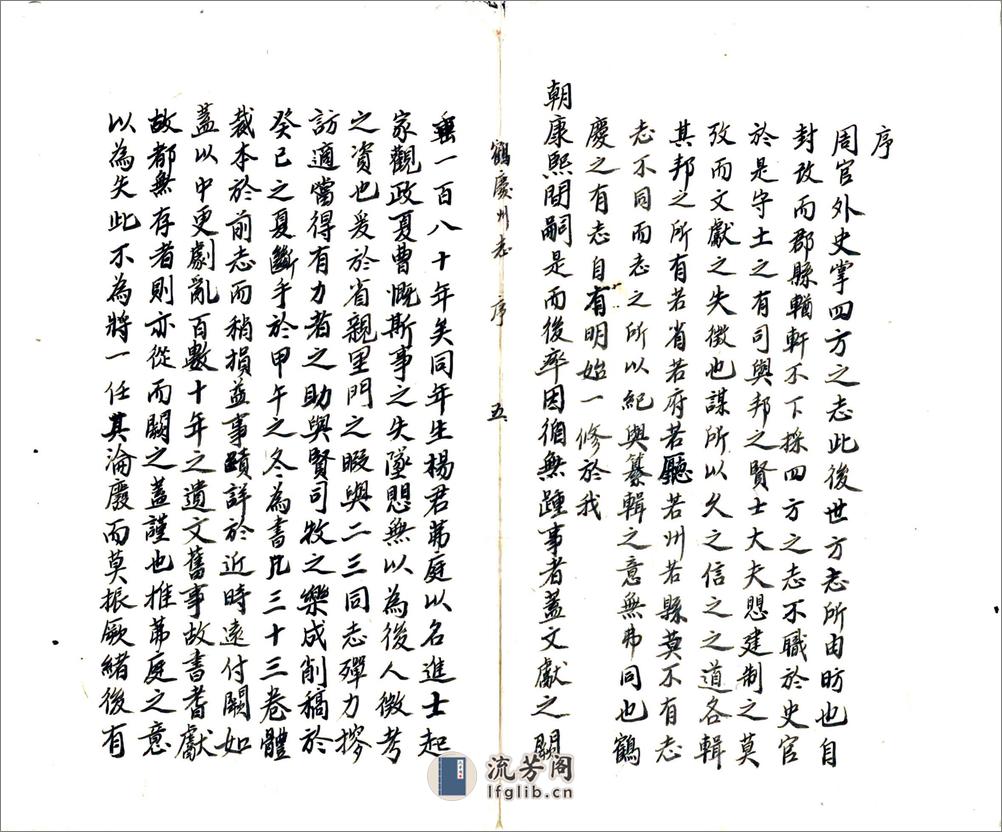 序
周官外史掌四方之志此後世方志所由昉也自
封攷而郡縣輶軒不下採四方之志不職於史官
於是守土之有司與邦之賢士大夫愳建制之莫
攷而文獻之失徵也謀所以久之信之之道各輯
其邦之所有若省若府若廳若州若縣莫不有志
志不同而志之所以紀與纂輯之意無弗同也鶴
慶之有志自有明始一修於我
朝康熙間嗣是而後率因循無踵事者蓋文獻之闕
鶴慶州志 序 五
一百八十年矣同年生楊君茀庭以名進士起
家觀政夏曹慨斯事之失墜愳無以為後人徵考
之資也爰於省親里門之暇與二三同志殫力搜
訪適當得有力者之助與賢司牧之樂成削稿於
癸巳之夏斷手於甲午之冬為書凡三十三卷體
裁本於前志而稍損益事蹟詳於近時遠付闕如
蓋以中更劇亂百數十年之遺文舊事故書耆獻
故都無存者則亦從而闕之蓋謹也推茀庭之意
以為失此不為將一任其淪廢而莫振厥緒後有
流芳阁
lfglib.cn